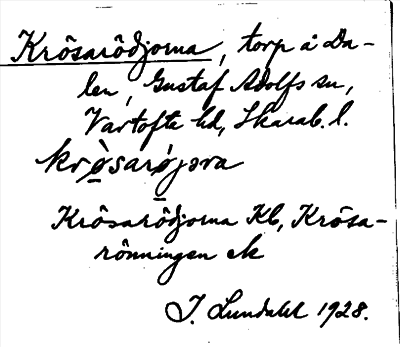 Krösarödjorna, torp å Da-
len, Gustaf Adolfs sn,
Vartofta hd, Skarab. l.
krò̲sarø̲jɔra
Krösarödjorna Kb, Krösa-
rönningen ek
J. Lundahl 1928.